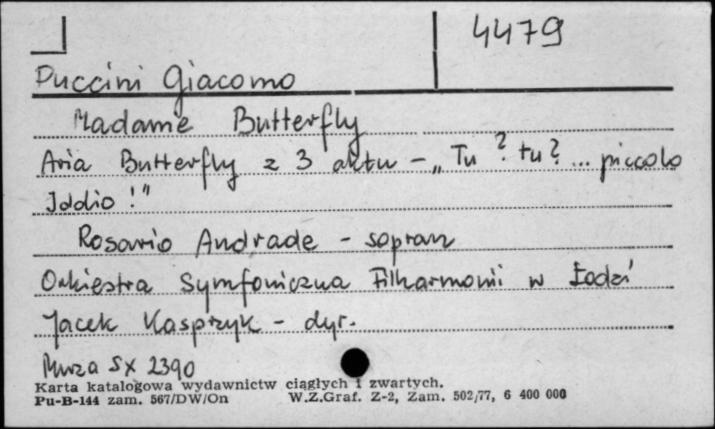 4479
Puccini Giacomo
Madame Butterfly
Aria Butterfly z 3 aktu - „Tu? tu? ... piccolo
Iddio!"
Rosario Andrade - sopran
Orkiestra Symfoniczna Filharmonii w Łodzi
Jacek Kasprzyk - dyr.
Muza SX 2390
Karta katalogowa wydawnictw ciągłych i zwartych.
Pu-B-144 zam. 567/DW/On W.Z.Graf. Z-2, Zam. 502/77, 6 400 000